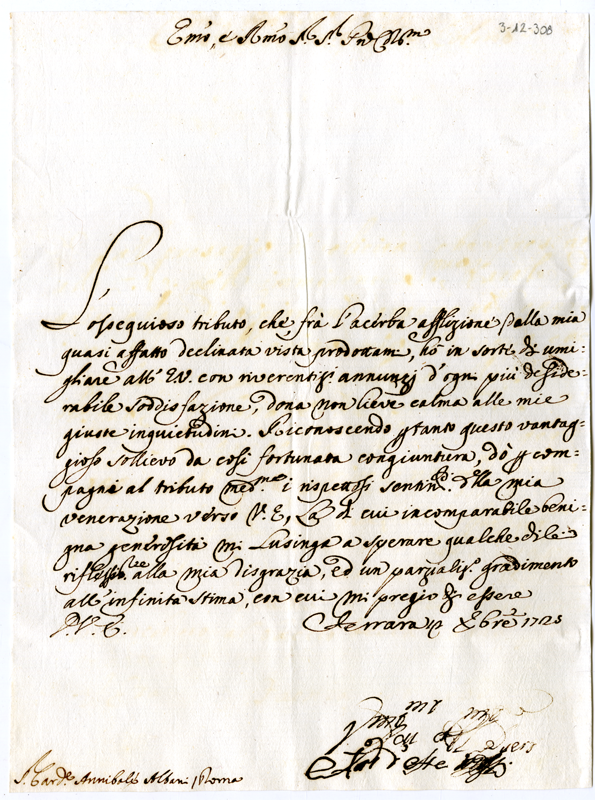 3-12-308
Emo, e Rmo Sr. Sr. Pnē Colmo
L'ossequioso tributo, che frà l'acerba afflizione dalla mia
quasi affatto declinata vista prodottami, hò in sorte di umi=
gliare all' E.V. con riverentismi annunzj d'ogni più deside=
rabile soddisfazione, dona non lieve calma alle mie
giuste inquietudini. Riconoscendo ptanto questo vantag=
gioso sollievo da così fortunata congiuntura, dò p com=
pagni al tributo medmo i rispettosi sentimti della mia
venerazione verso V.E., La di cui incomparabile beni=
gna generosità mi Lusinga a sperare qualche di lei
riflesso alla mia disgrazia, ed un parzialismo gradimento
all' infinita stima, con cui mi pregio di essere
D.V.E. Ferrara 12 Xbre 1723
Sr. Carde Annibale Albani / Roma